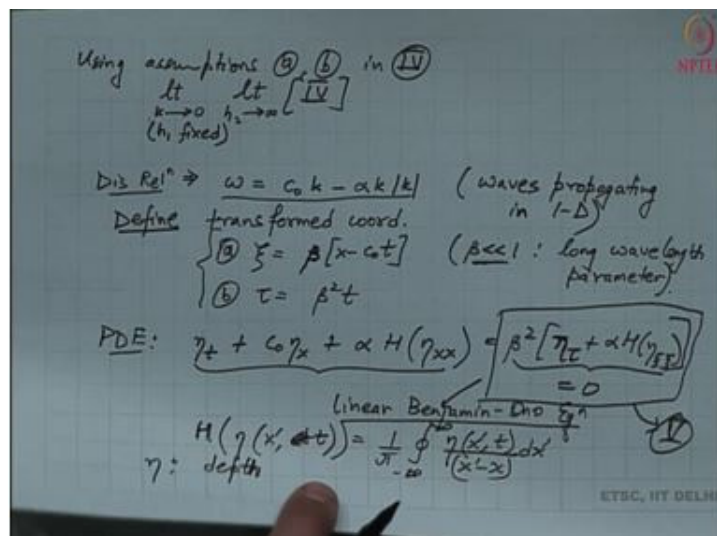 Using assumptions ⓐ, ⓑ in Ⓘⓥ
lt lt [IV]
k→0 h₂→∞
(h₁ fixed)
NPTEL
Dis Relⁿ ⇒ ω = c₀k - αk|k| (waves propagating in 1-D)
Define transformed coord.
ⓐ ξ = β[x-c₀t] (β<<1 : long wavelength parameter)
ⓑ τ = β²t
PDE: ηₜ + c₀ηₓ + αH(ηₓₓ) = β²[η_τ + αH(η_ξξ)]
= 0
Linear Benjamin-Ono Eqⁿ
Ⓥ
H(η(x′, t)) = 1/π ∮_{-∞}^{∞} η(x′,t)/(x′-x) dx′
η: depth
ETSC, IIT DELHI